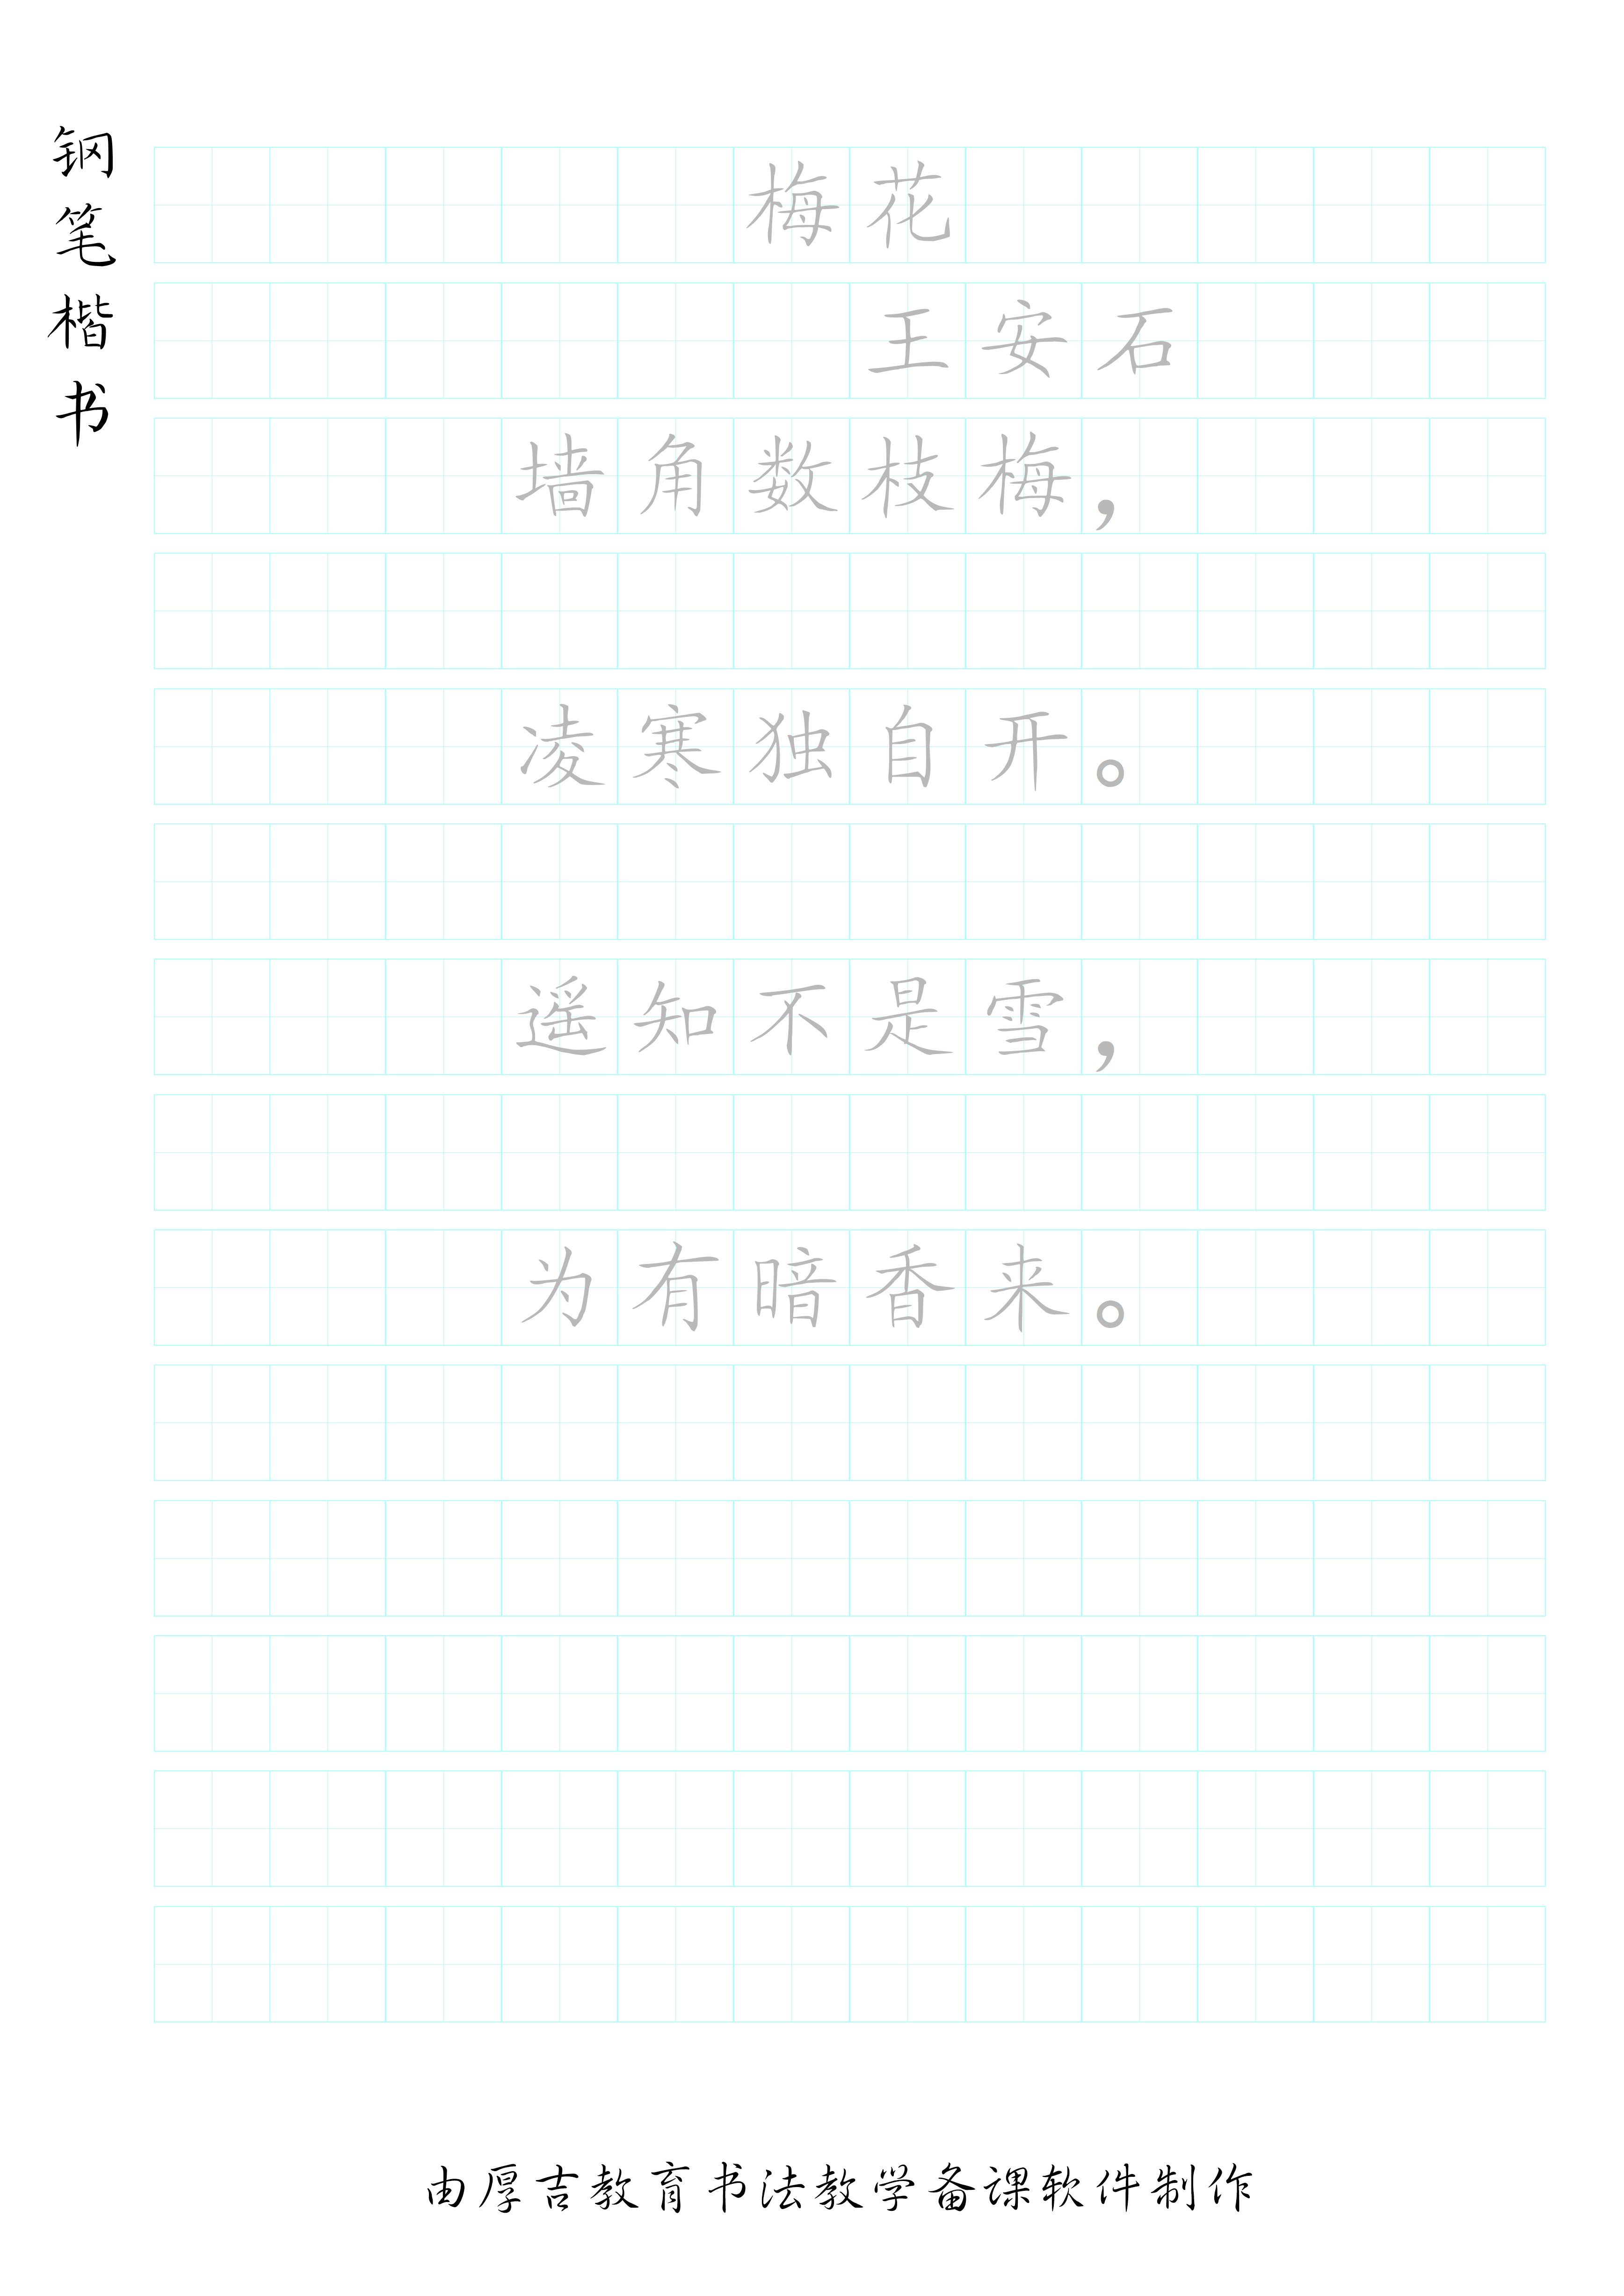 钢笔楷书
梅花
王安石
墙角数枝梅，
凌寒独自开。
遥知不是雪，
为有暗香来。
由厚吉教育书法教学备课软件制作